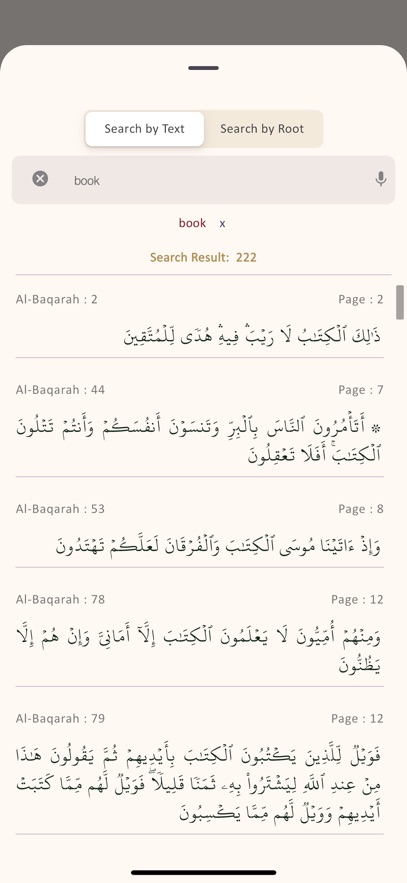 Search by Text Search by Root
book
book x
Search Result: 222
Al-Baqarah : 2 Page : 2
ذَٰلِكَ ٱلْكِتَٰبُ لَا رَيْبَ ۛ فِيهِ ۛ هُدًى لِّلْمُتَّقِينَ
Al-Baqarah : 44 Page : 7
۞ أَتَأْمُرُونَ ٱلنَّاسَ بِٱلْبِرِّ وَتَنسَوْنَ أَنفُسَكُمْ وَأَنتُمْ تَتْلُونَ
ٱلْكِتَٰبَ ۚ أَفَلَا تَعْقِلُونَ
Al-Baqarah : 53 Page : 8
وَإِذْ ءَاتَيْنَا مُوسَى ٱلْكِتَٰبَ وَٱلْفُرْقَانَ لَعَلَّكُمْ تَهْتَدُونَ
Al-Baqarah : 78 Page : 12
وَمِنْهُمْ أُمِّيُّونَ لَا يَعْلَمُونَ ٱلْكِتَٰبَ إِلَّآ أَمَانِىَّ وَإِنْ هُمْ إِلَّا
يَظُنُّونَ
Al-Baqarah : 79 Page : 12
فَوَيْلٌ لِّلَّذِينَ يَكْتُبُونَ ٱلْكِتَٰبَ بِأَيْدِيهِمْ ثُمَّ يَقُولُونَ هَٰذَا
مِنْ عِندِ ٱللَّهِ لِيَشْتَرُوا۟ بِهِۦ ثَمَنًا قَلِيلًا ۖ فَوَيْلٌ لَّهُم مِّمَّا كَتَبَتْ
أَيْدِيهِمْ وَوَيْلٌ لَّهُم مِّمَّا يَكْسِبُونَ